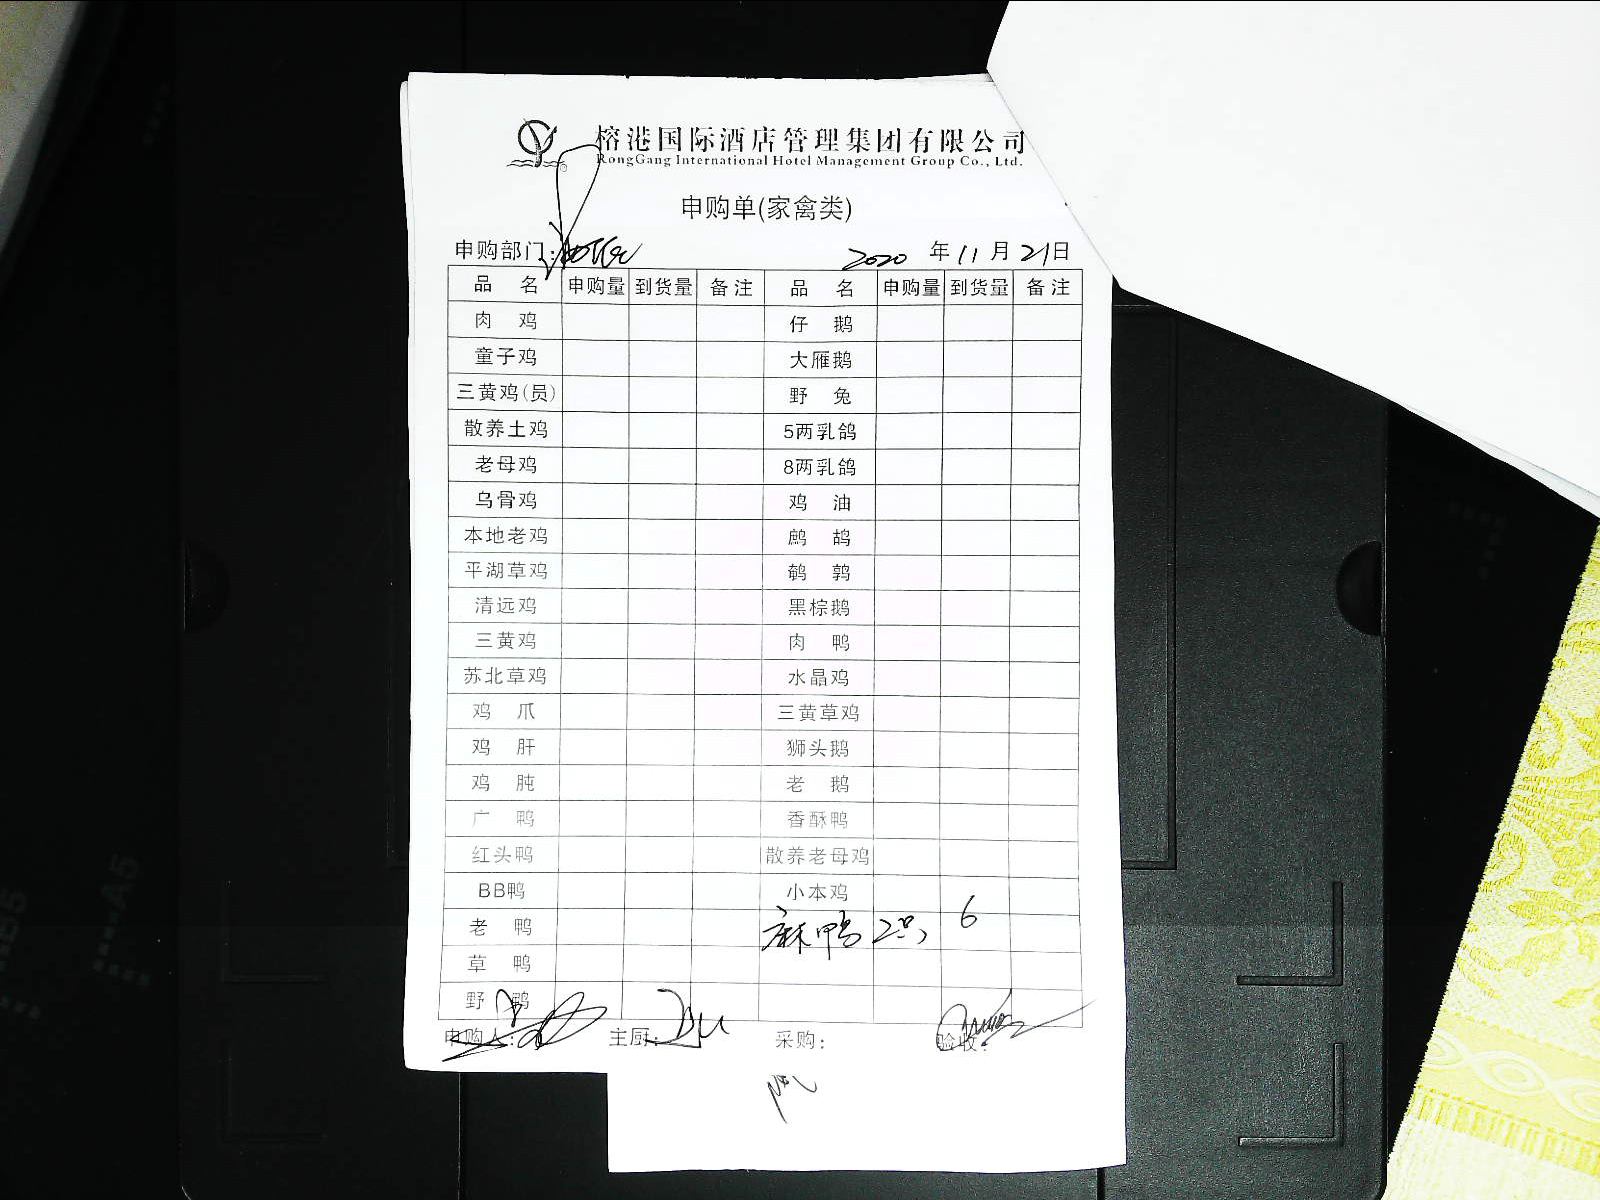 榕港国际酒店管理集团有限公司
RongGang International Hotel Management Group Co., Ltd.
申购单(家禽类)
申购部门: 2020 年 11 月 21 日
品 名 申购量 到货量 备注 品 名 申购量 到货量 备注
肉 鸡 仔 鹅
童子鸡 大雁鹅
三黄鸡(员) 野 兔
散养土鸡 5两乳鸽
老母鸡 8两乳鸽
乌骨鸡 鸡 油
本地老鸡 鹧 鸪
平湖草鸡 鹌 鹑
清远鸡 黑棕鹅
三黄鸡 肉 鸭
苏北草鸡 水晶鸡
鸡 爪 三黄草鸡
鸡 肝 狮头鹅
鸡 肫 老 鹅
广 鸭 香酥鸭
红头鸭 散养老母鸡
BB鸭 小本鸡
老 鸭 麻鸭 2只 6
草 鸭
野 鸭
申购人: 主厨: 采购: 验收:
A5
B5